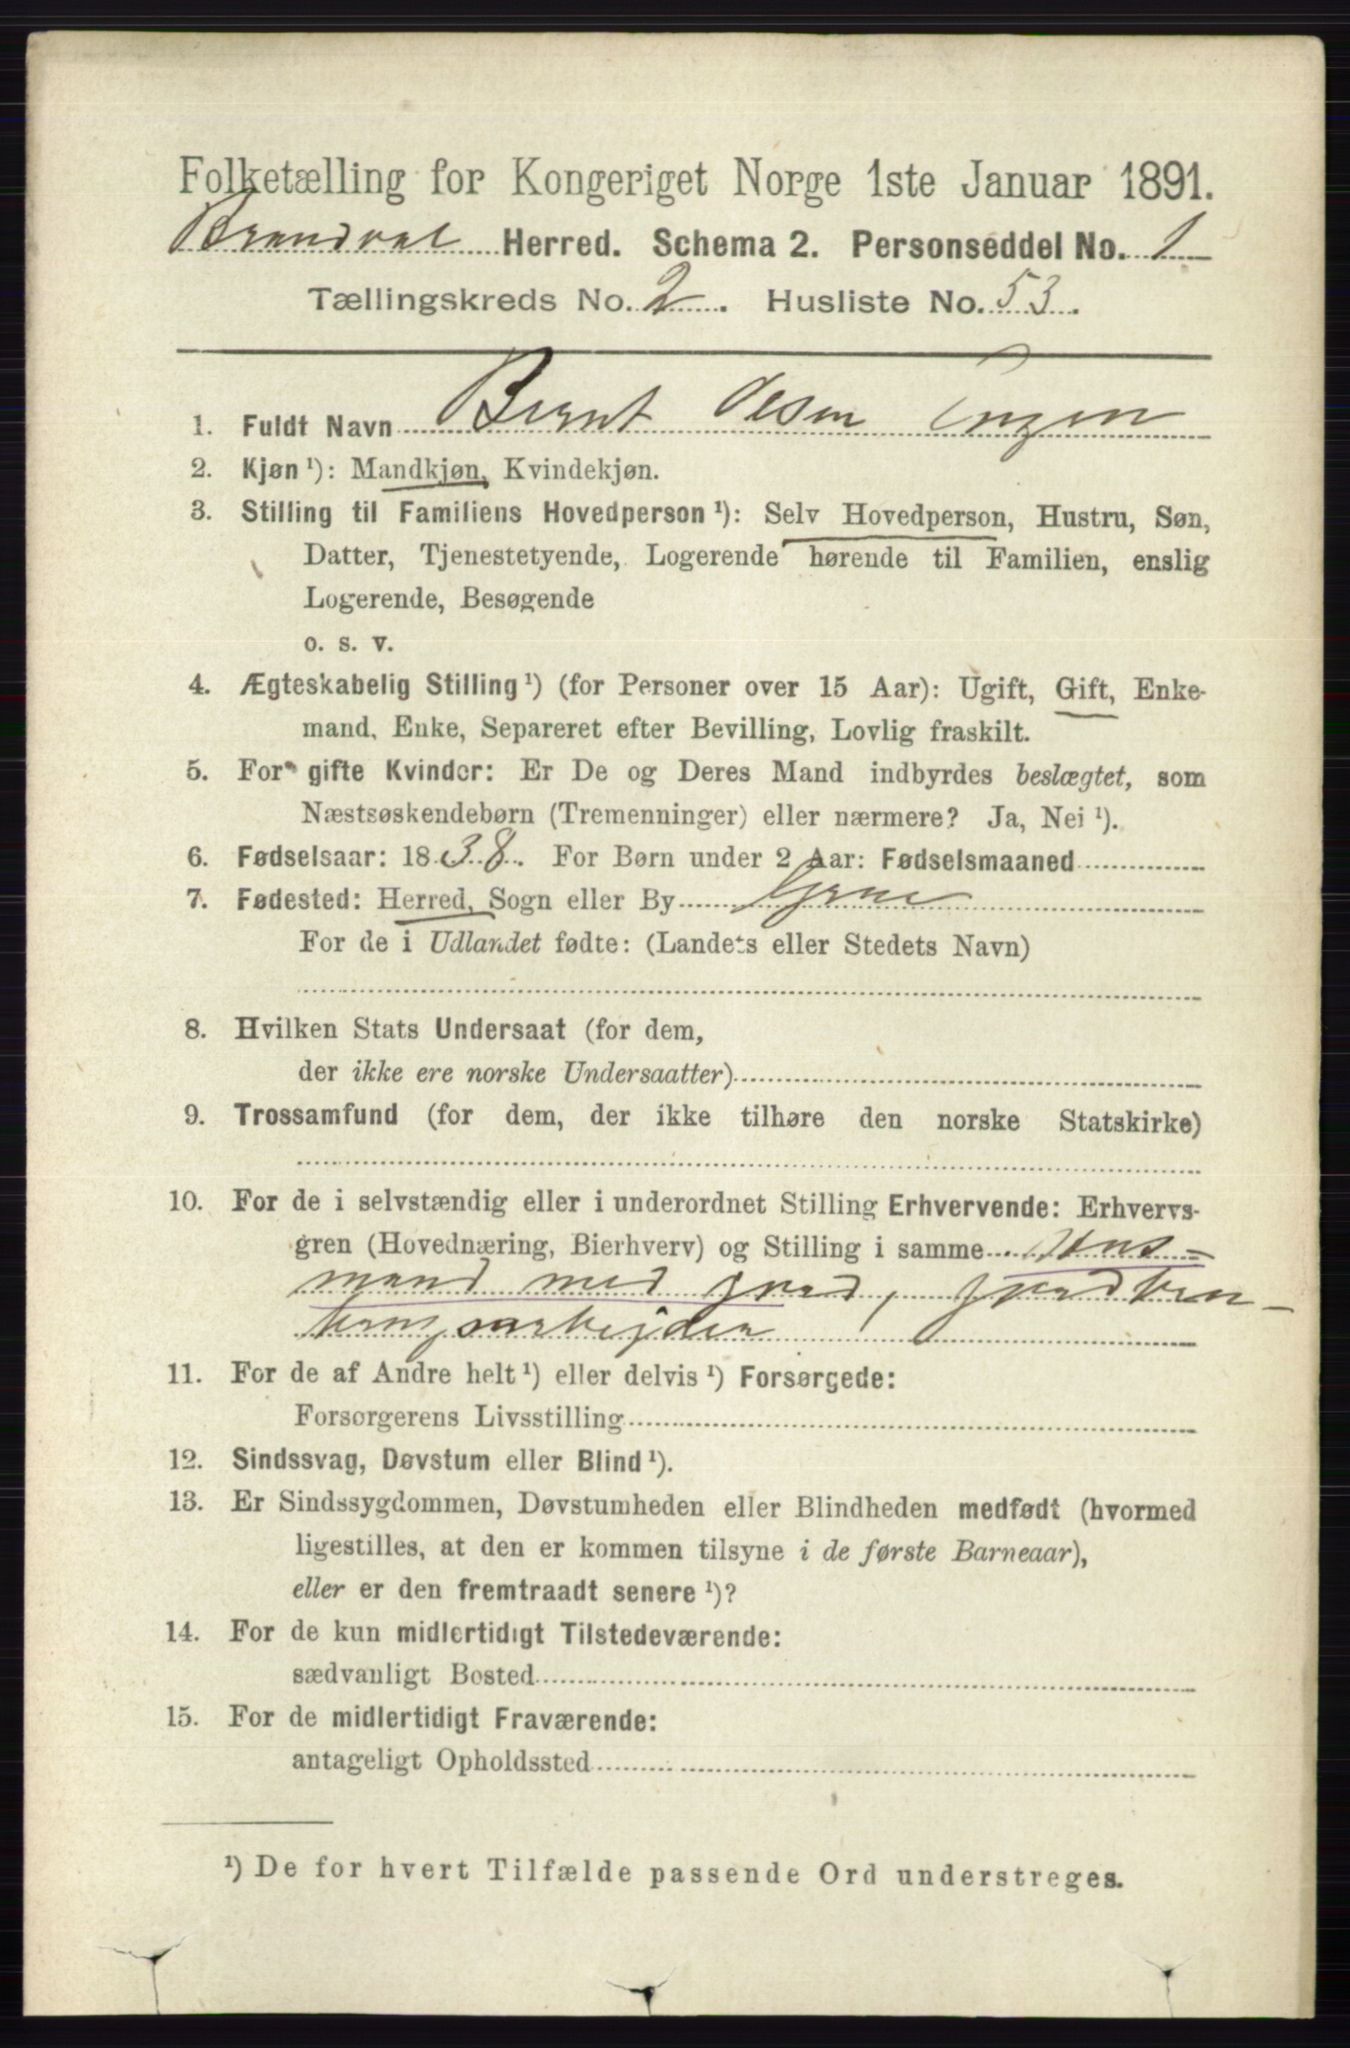 Folketælling for Kongeriget Norge 1ste Januar 1891.
Brandval Herred. Schema 2. Personseddel No. 1
Tællingskreds No. 2. Husliste No. 53.
1. Fuldt Navn Bernt Olsen Engen
2. Kjøn ¹): Mandkjøn, Kvindekjøn.
3. Stilling til Familiens Hovedperson ¹): Selv Hovedperson, Hustru, Søn,
Datter, Tjenestetyende, Logerende hørende til Familien, enslig
Logerende, Besøgende
o. s. v.
4. Ægteskabelig Stilling ¹) (for Personer over 15 Aar): Ugift, Gift, Enke-
mand, Enke, Separeret efter Bevilling, Lovlig fraskilt.
5. For gifte Kvinder: Er De og Deres Mand indbyrdes beslægtet, som
Næstsøskendebørn (Tremenninger) eller nærmere? Ja, Nei ¹).
6. Fødselsaar: 1838. For Børn under 2 Aar: Fødselsmaaned
7. Fødested: Herred, Sogn eller By Grue
For de i Udlandet fødte: (Landets eller Stedets Navn)
8. Hvilken Stats Undersaat (for dem,
der ikke ere norske Undersaatter)
9. Trossamfund (for dem, der ikke tilhøre den norske Statskirke)
10. For de i selvstændig eller i underordnet Stilling Erhvervende: Erhvervs-
gren (Hovednæring, Bierhverv) og Stilling i samme Hus-
mand med jord, jordbru-
kensarbejder
11. For de af Andre helt ¹) eller delvis ¹) Forsørgede:
Forsørgerens Livsstilling
12. Sindssvag, Døvstum eller Blind ¹).
13. Er Sindssygdommen, Døvstumheden eller Blindheden medfødt (hvormed
ligestilles, at den er kommen tilsyne i de første Barneaar),
eller er den fremtraadt senere ¹)?
14. For de kun midlertidigt Tilstedeværende:
sædvanligt Bosted
15. For de midlertidigt Fraværende:
antageligt Opholdssted
¹) De for hvert Tilfælde passende Ord understreges.